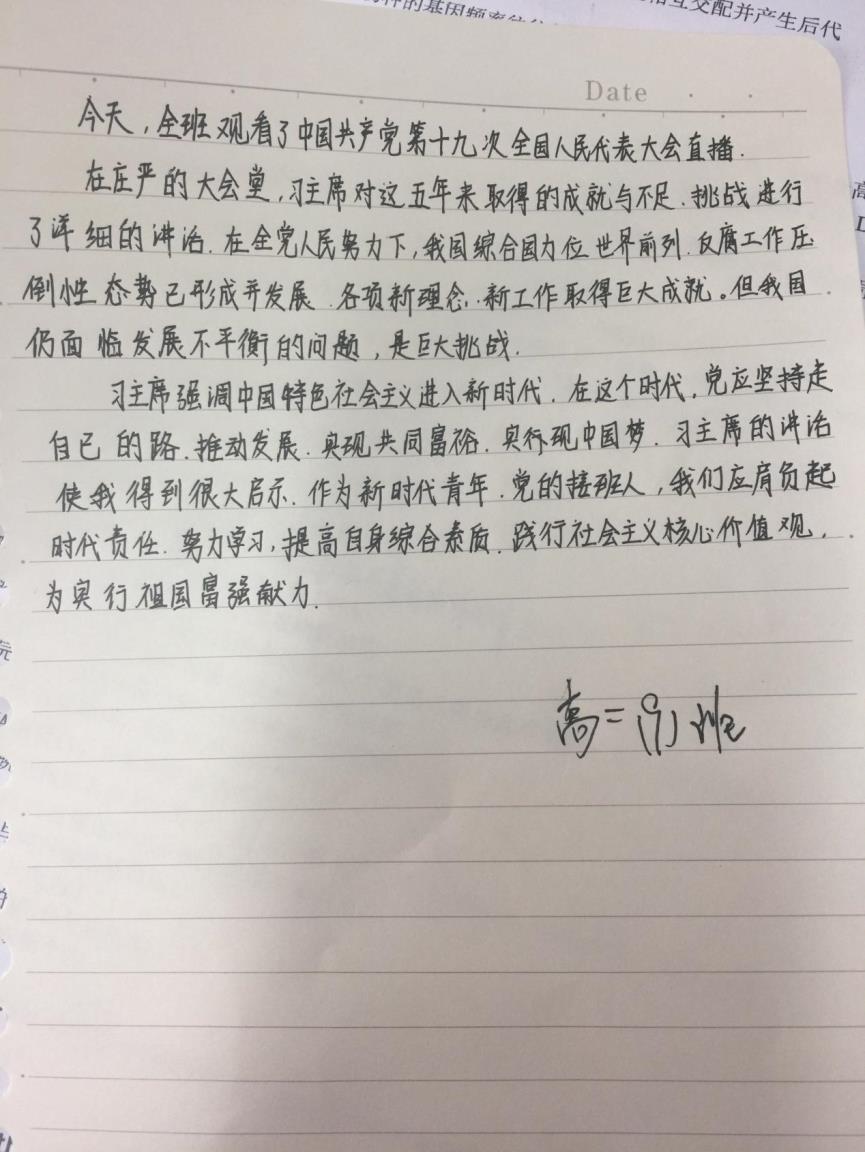 的基因频率往往
相互交配并产生后代
Date
今天,全班观看了中国共产党第十九次全国人民代表大会直播.
在庄严的大会堂,习主席对这五年来取得的成就与不足.挑战进行
了详细的讲话.在全党人民努力下,我国综合国力位世界前列.反腐工作压
倒性态势已形成并发展.各项新理念.新工作取得巨大成就。但我国
仍面临发展不平衡的问题,是巨大挑战.
习主席强调中国特色社会主义进入新时代.在这个时代,党应坚持走
自己的路.推动发展.实现共同富裕.实行现中国梦.习主席的讲话
使我得到很大启示.作为新时代青年.党的接班人,我们应肩负起
时代责任.努力学习,提高自身综合素质.践行社会主义核心价值观,
为实行祖国富强献力.
高二(9)班